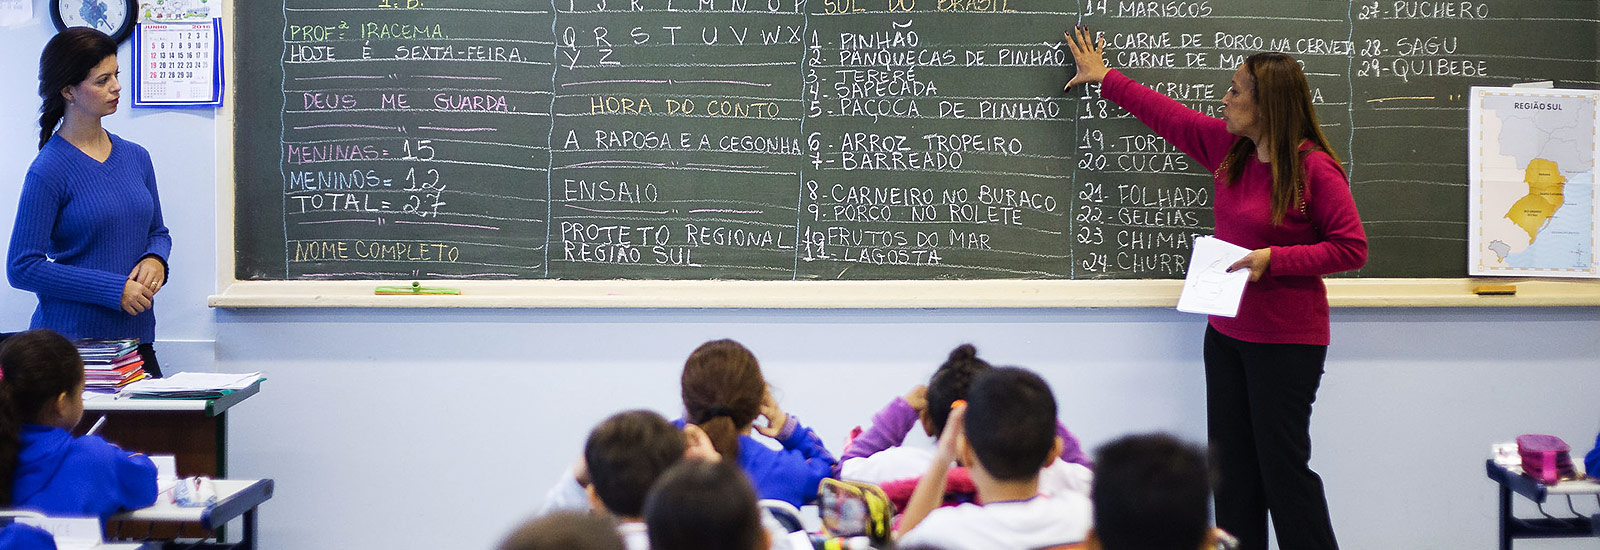 JUNHO 2016
1. B.
PROFª IRACEMA.
HOJE É SEXTA-FEIRA.
DEUS ME GUARDA.
MENINAS = 15
MENINOS = 12
TOTAL = 27
NOME COMPLETO
I J K L M N O P
Q R S T U V W X
Y Z
HORA DO CONTO
A RAPOSA E A CEGONHA
ENSAIO
PROJETO REGIONAL
REGIÃO SUL
SUL DO BRASIL
1- PINHÃO
2- PANQUECAS DE PINHÃO
3- TERERÉ
4- SAPECADA
5- PAÇOCA DE PINHÃO
6- ARROZ TROPEIRO
7- BARREADO
8- CARNEIRO NO BURACO
9- PORCO NO ROLETE
10- FRUTOS DO MAR
11- LAGOSTA
14- MARISCOS
CARNE DE PORCO NA CERVEJA
CARNE DE
17
18-
19- 
20- CUCAS
21- FOLHADO
22- GELÉIAS
23
24-
27- PUCHERO
28- SAGU
29- QUIBEBE
REGIÃO SUL